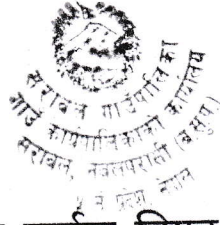 सरावल गाउँपालिका
गाउँ कार्यपालिकाको कार्यालय
सरावल, नवलपरासी (ब.सु.प.)
प्रदेश, नेपाल